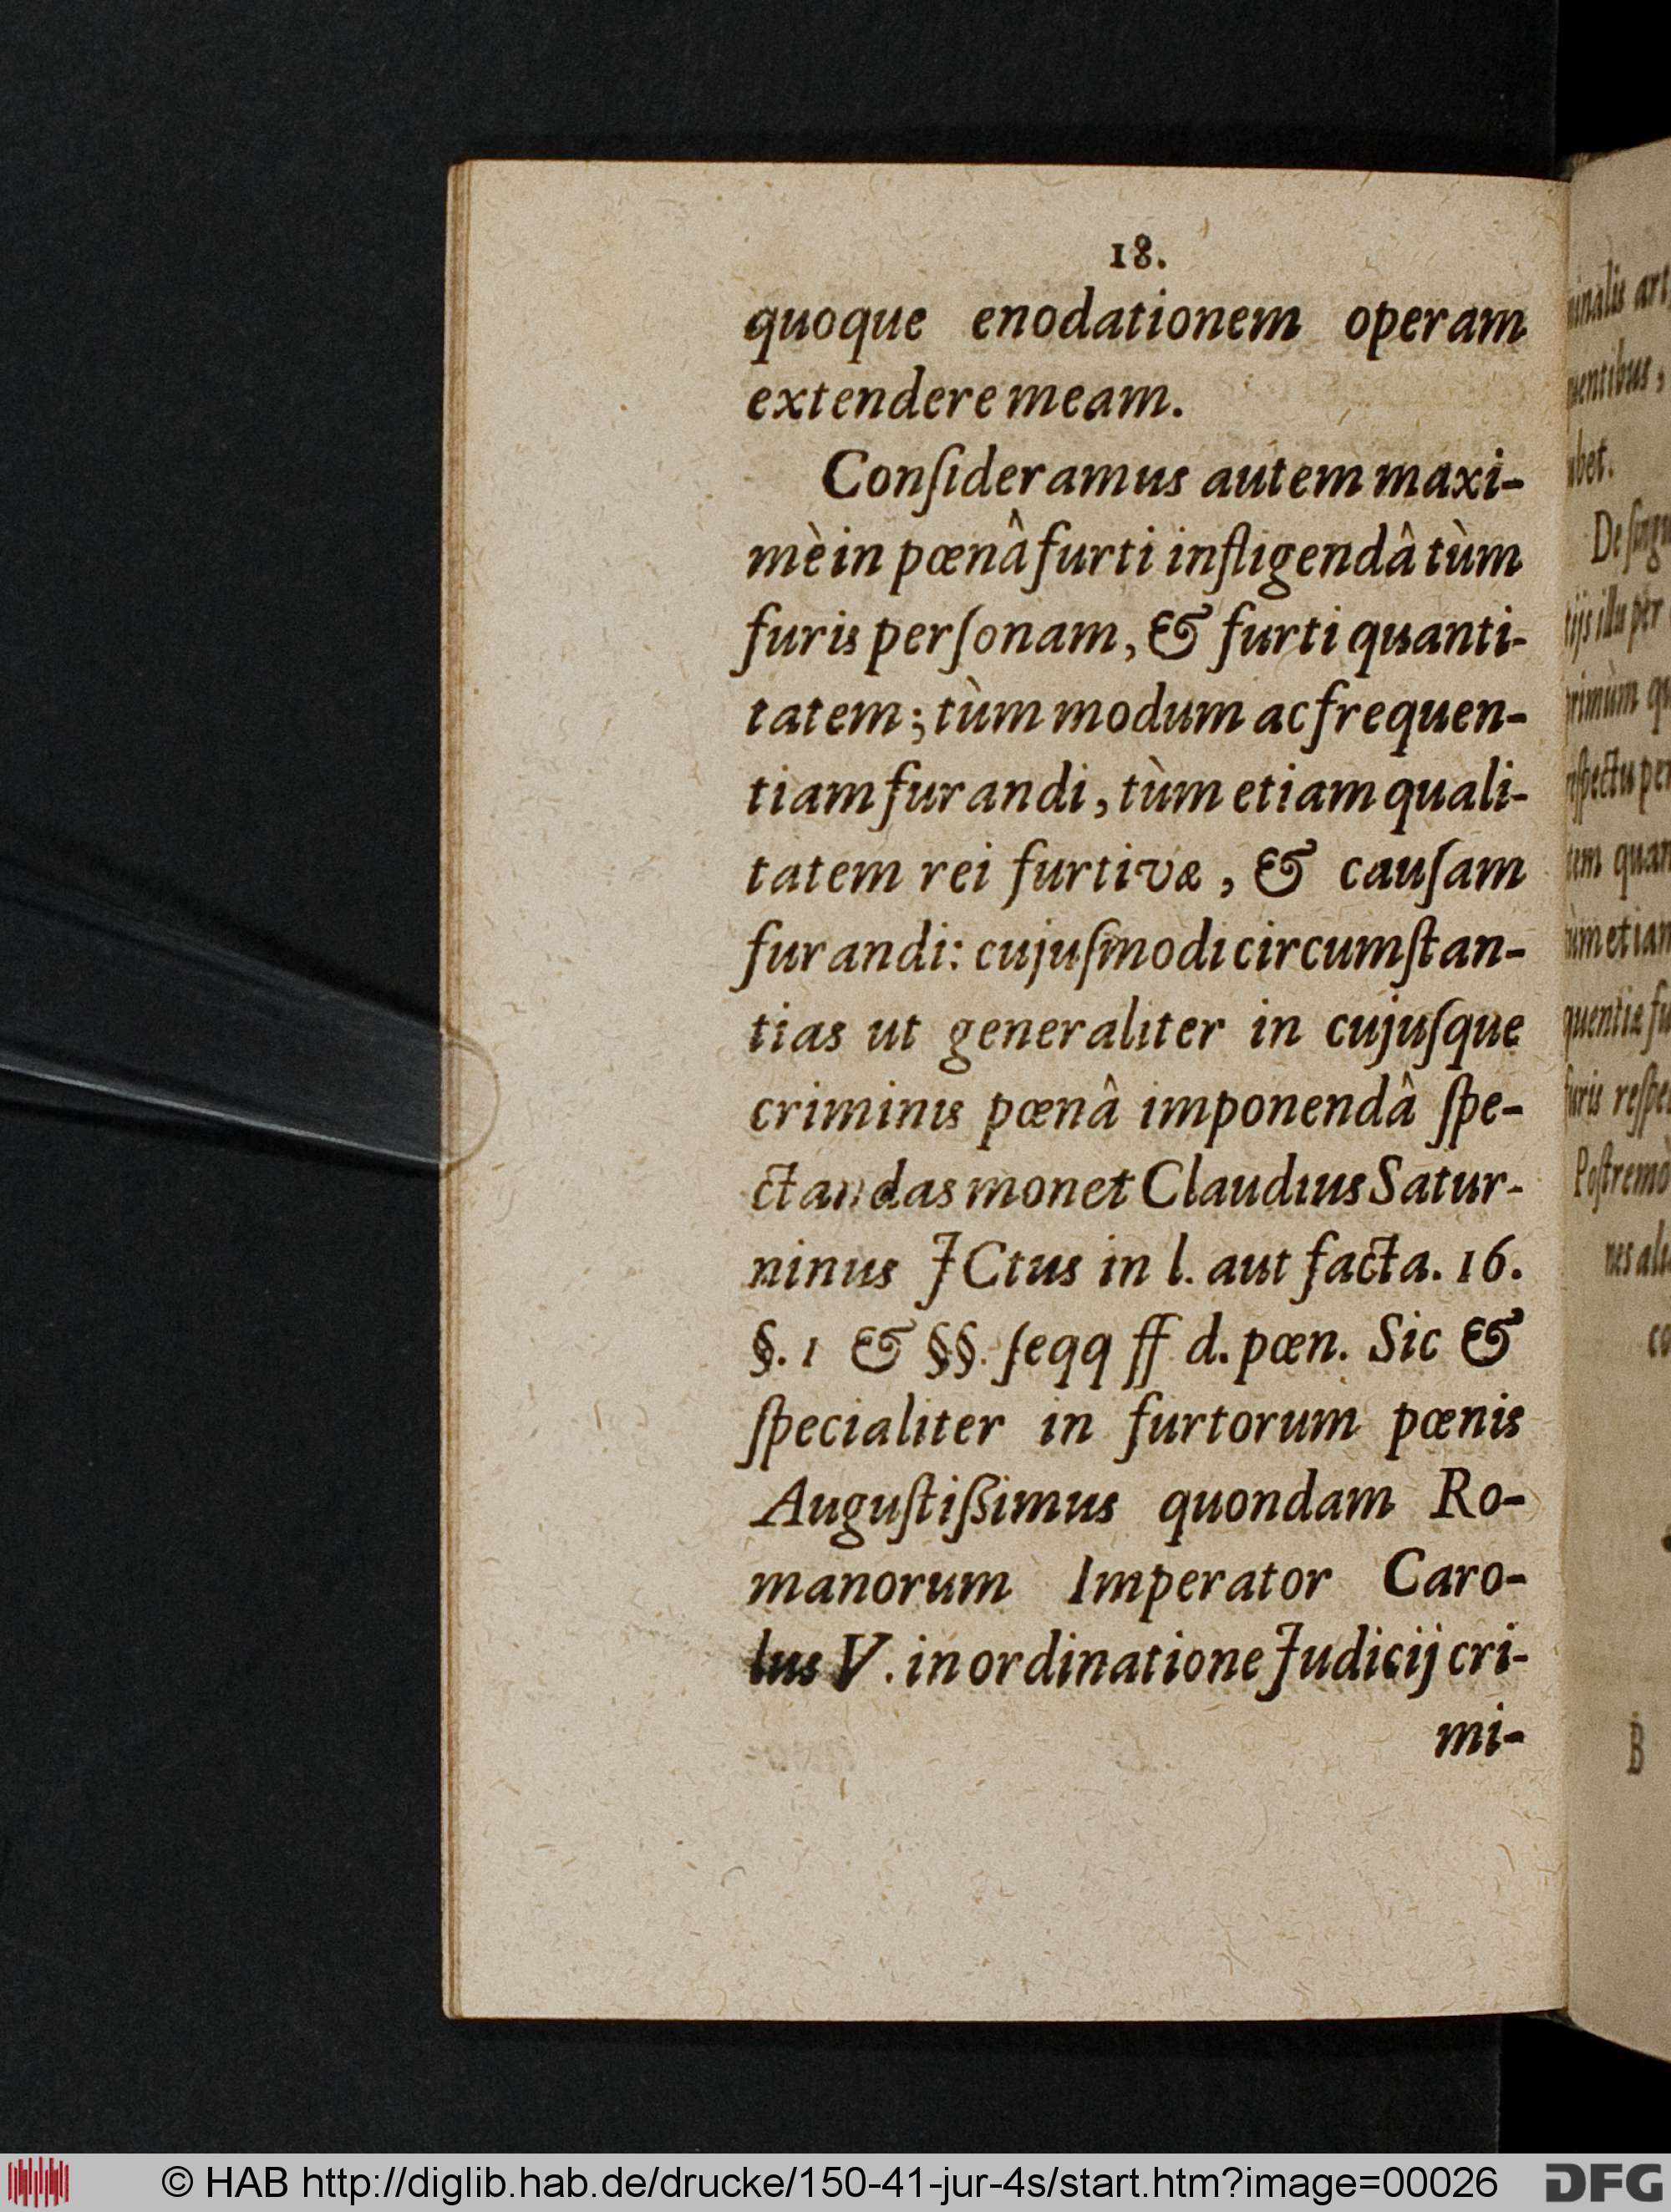 18.
quoque enodationem operam
extendere meam.
Conſideramus autem maxi-
mè in pœnâ furti infligendâ tùm
furis perſonam, & furti quanti-
tatem; tùm modum ac frequen-
tiam furandi, tùm etiam quali-
tatem rei furtivæ, & cauſam
furandi: cujuſmodi circumſtan-
tias ut generaliter in cujuſque
criminis pœnâ imponendâ ſpe-
ctandas monet Claudius Satur-
ninus JCtus in l. aut facta. 16.
§. 1 & §§. ſeqq ff d. pœn. Sic &
ſpecialiter in furtorum pœnis
Auguſtiſſimus quondam Ro-
manorum Imperator Caro-
lus V. in ordinatione Judicij cri-
mi-
© HAB http://diglib.hab.de/drucke/150-41-jur-4s/start.htm?image=00026
DFG